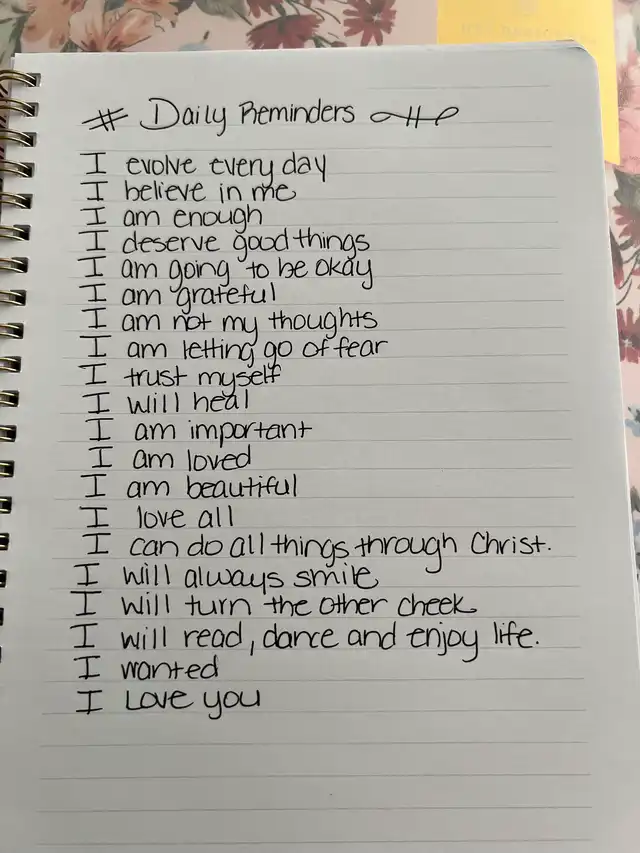 # Daily Reminders
I evolve every day
I believe in me
I am enough
I deserve good things
I am going to be okay
I am grateful
I am not my thoughts
I am letting go of fear
I trust myself
I will heal
I am important
I am loved
I am beautiful
I love all
I can do all things through Christ.
I will always smile
I will turn the other cheek
I will read, dance and enjoy life.
I wanted
I Love you